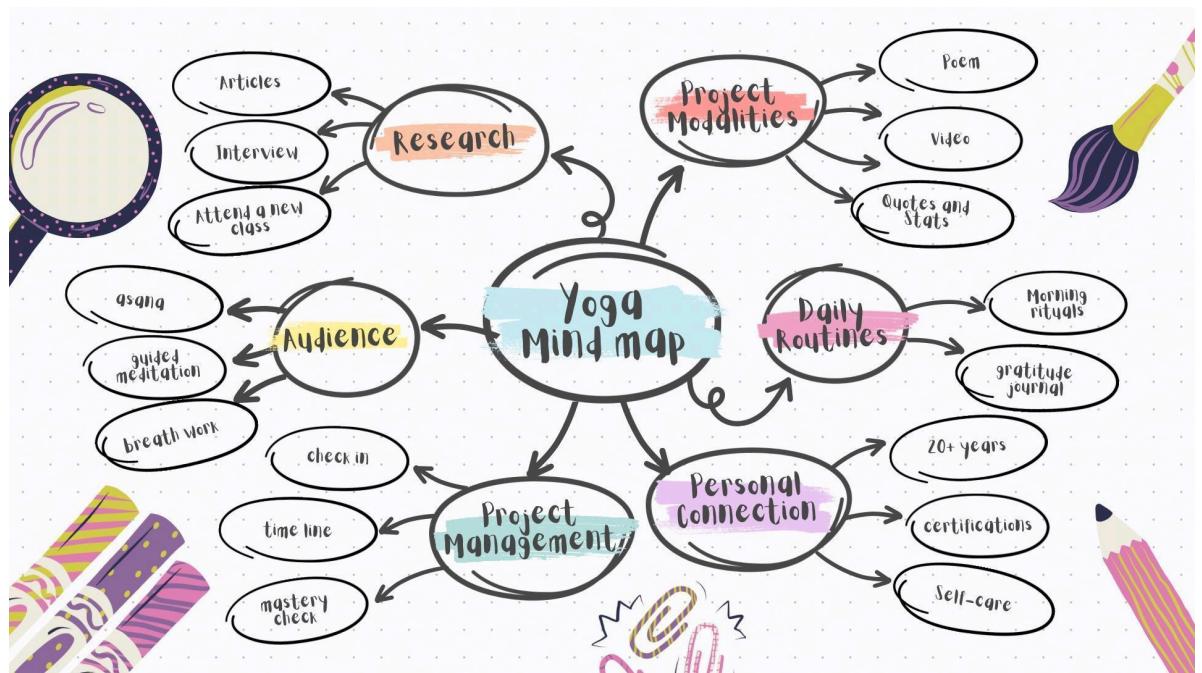 Yoga
Mind map
Research
Articles
Interview
Attend a new
class
Project
Modalities
Poem
Video
Quotes and
Stats
Audience
asana
guided
meditation
breath work
Daily
Routines
Morning
rituals
gratitude
journal
Project
Management
check in
time line
mastery
check
Personal
Connection
20+ years
certifications
Self-care